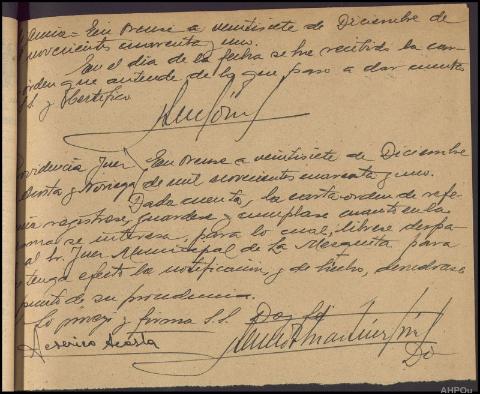 En Orense a veintisiete de Diciembre de
novecientos cuarenta y uno.
En el dia de la fecha se ha recibido la car
orden que antecede de la que paso a dar cuenta
S.S. y Certifico
Providencia Juez En Orense a veintisiete de Diciembre
Acosta y Noriega de mil novecientos cuarenta y uno.
Dada cuenta, la carta orden de refe
registrese, guardese y cumplase cuanto en la
misma se interesa, para lo cual, librese despa
al Sr. Juez Municipal de La Mezquita para
tenga efecto la notificacion, y de hecho, devuelvase
punto de su procedencia.
Lo proveyó y firma S.S. Doy fé
Federico Acosta
AHPOu